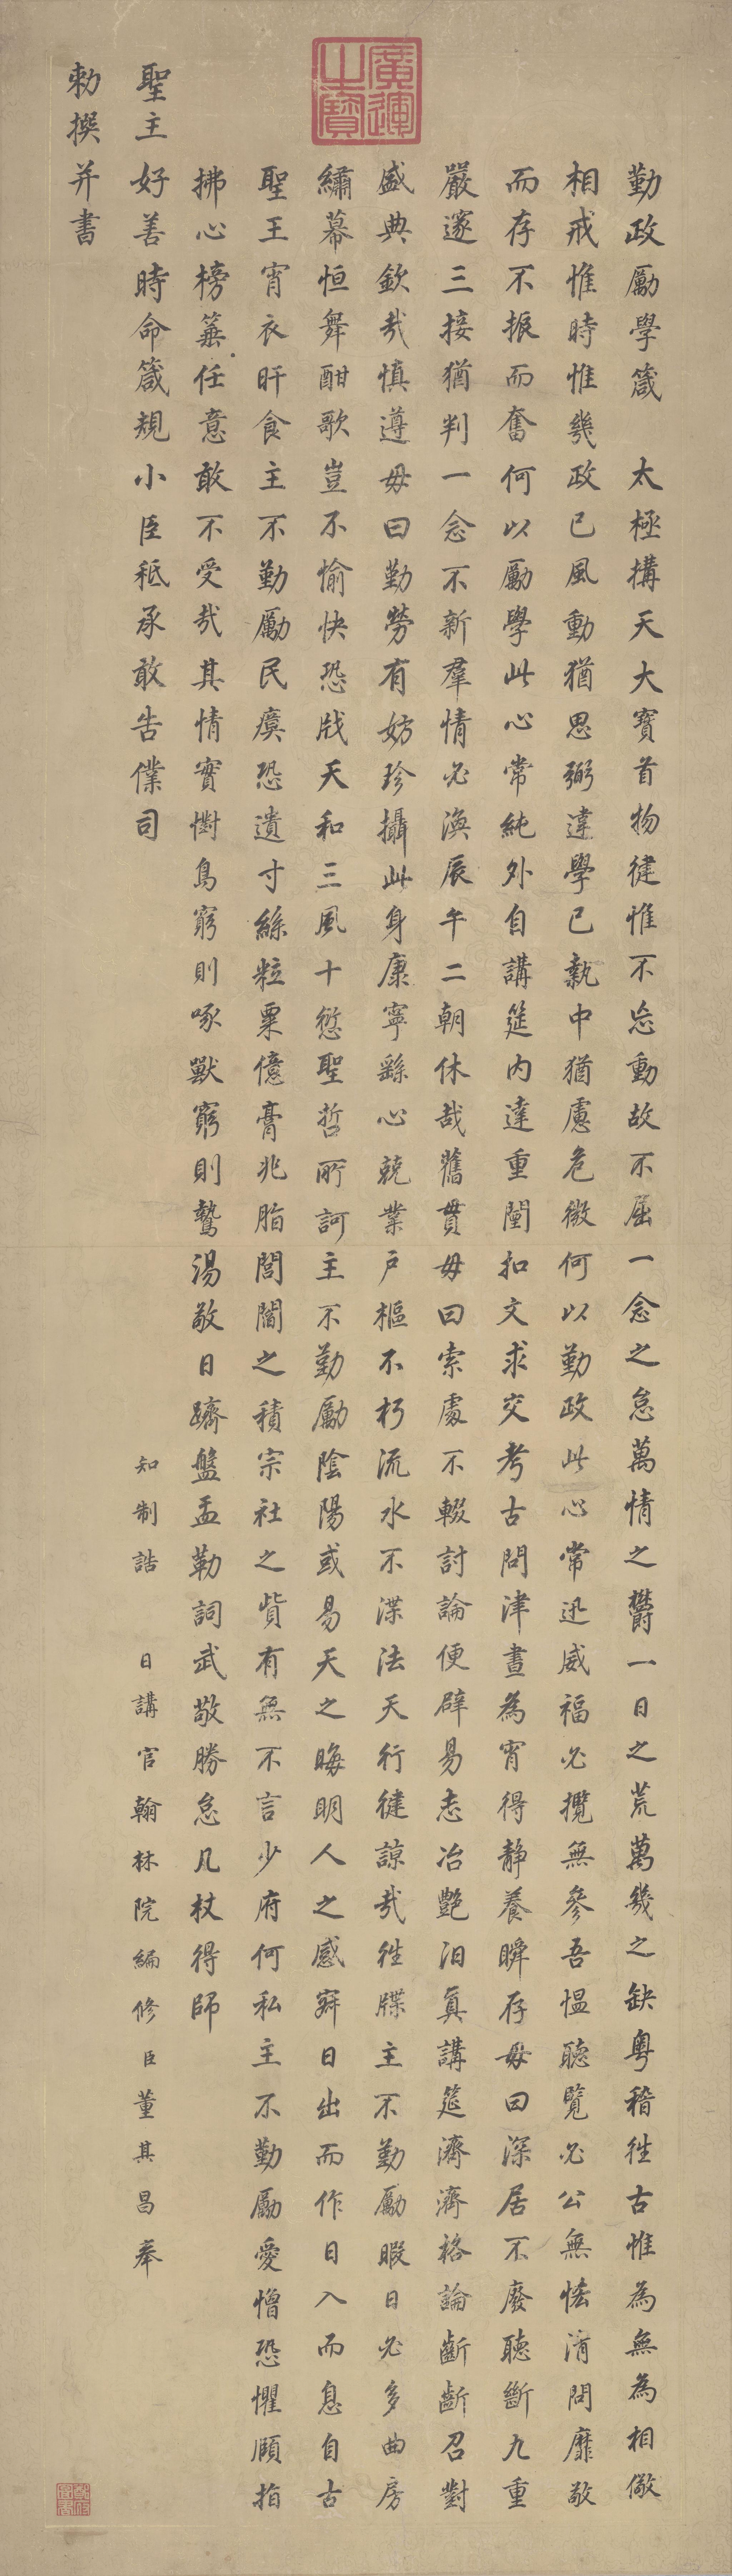 廣運之寶
勤政勵學箴　太極搆天大寶首物健惟不忘動故不屈一念之怠萬情之欝一日之荒萬幾之缺粵稽徃古惟為無為相儆
相戒惟時惟幾政已風動猶思弼違學已執中猶慮危微何以勤政此心常迅威福必攬無參吾愠聽覽必公無恡清問靡敢
而存不振而奮何以勵學此心常純外自講筵內達重闈扣文求交考古問津晝為宵得静養瞬存毋曰深居不廢聽斷九重
嚴邃三接猶判一念不新羣情必渙辰午二朝休哉舊貫毋曰索處不輟討論便辟易志冶艷汨真講筵濟濟格論齗齗召對
盛典欽哉慎遵毋曰勤勞有妨珍攝此身康寧繇心兢業戶樞不朽流水不渫法天行健諒哉徃牒主不勤勵暇日必多曲房
繡幕恒舞酣歌豈不愉快恐戕天和三風十愆聖哲所訶主不勤勵陰陽或易天之晦明人之感寐日出而作日入而息自古
聖王宵衣旰食主不勤勵民瘼恐遺寸絲粒粟億膏兆脂閭閻之積宗社之貲有無不言少府何私主不勤勵愛憎恐懼頤指
拂心榜箠任意敢不受哉其情實懟鳥窮則啄獸窮則鷙湯敬日躋盤盂勒詞武敬勝怠凡杖得師
聖主好善時命箴規小臣秪承敢告僕司　知制誥　日講官翰林院編修臣董其昌奉
勅撰并書